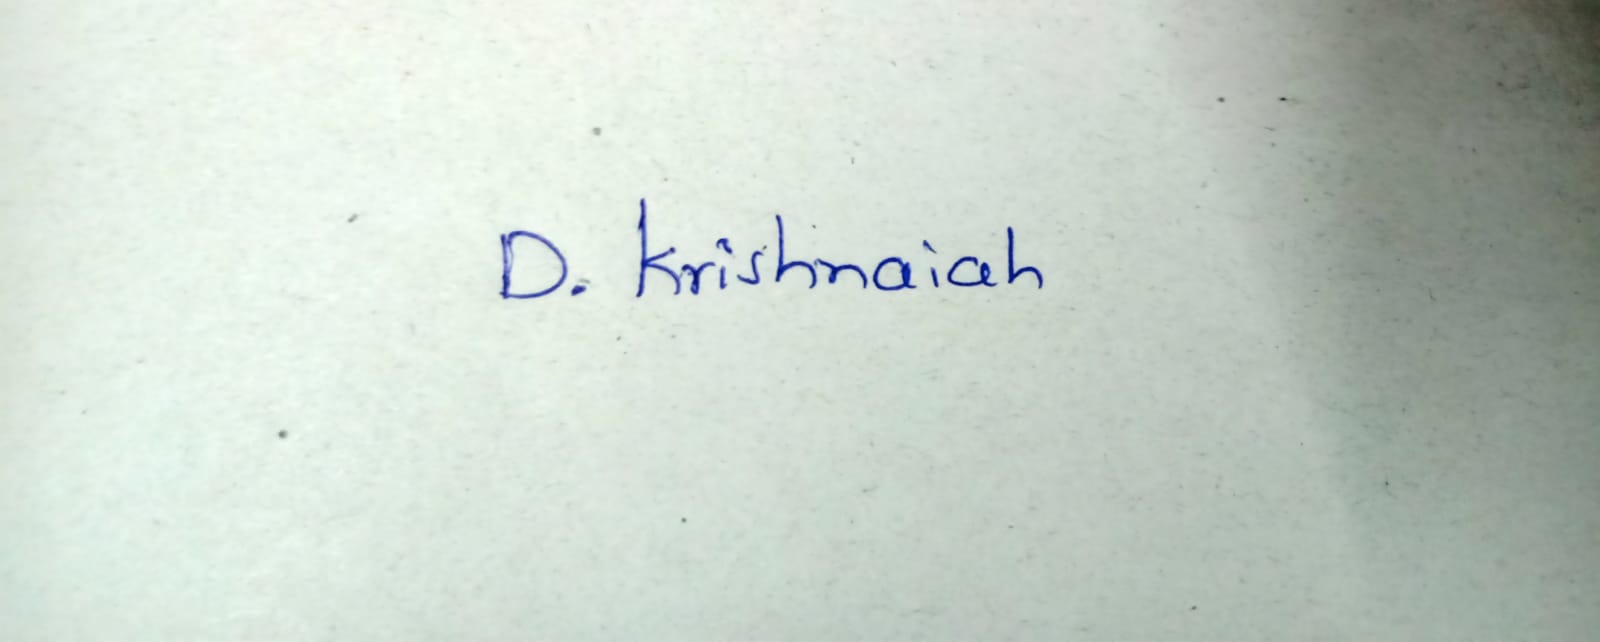 D. Krishnaiah